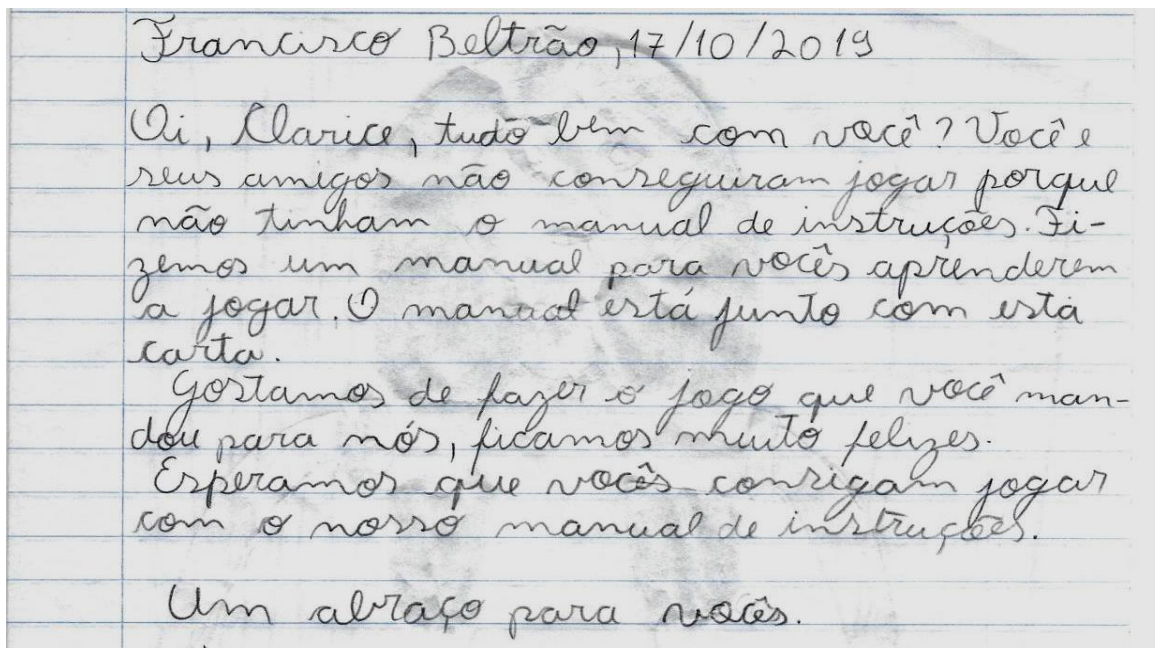 Francisco Beltrão, 17/10/2019
Oi, Clarice, tudo bem com você? Você e
seus amigos não conseguiram jogar porque
não tinham o manual de instruções. Fi-
zemos um manual para vocês aprenderem
a jogar. O manual está junto com esta
carta.
Gostamos de fazer o jogo que você man-
dou para nós, ficamos muito felizes.
Esperamos que vocês consigam jogar
com o nosso manual de instruções.
Um abraço para vocês.